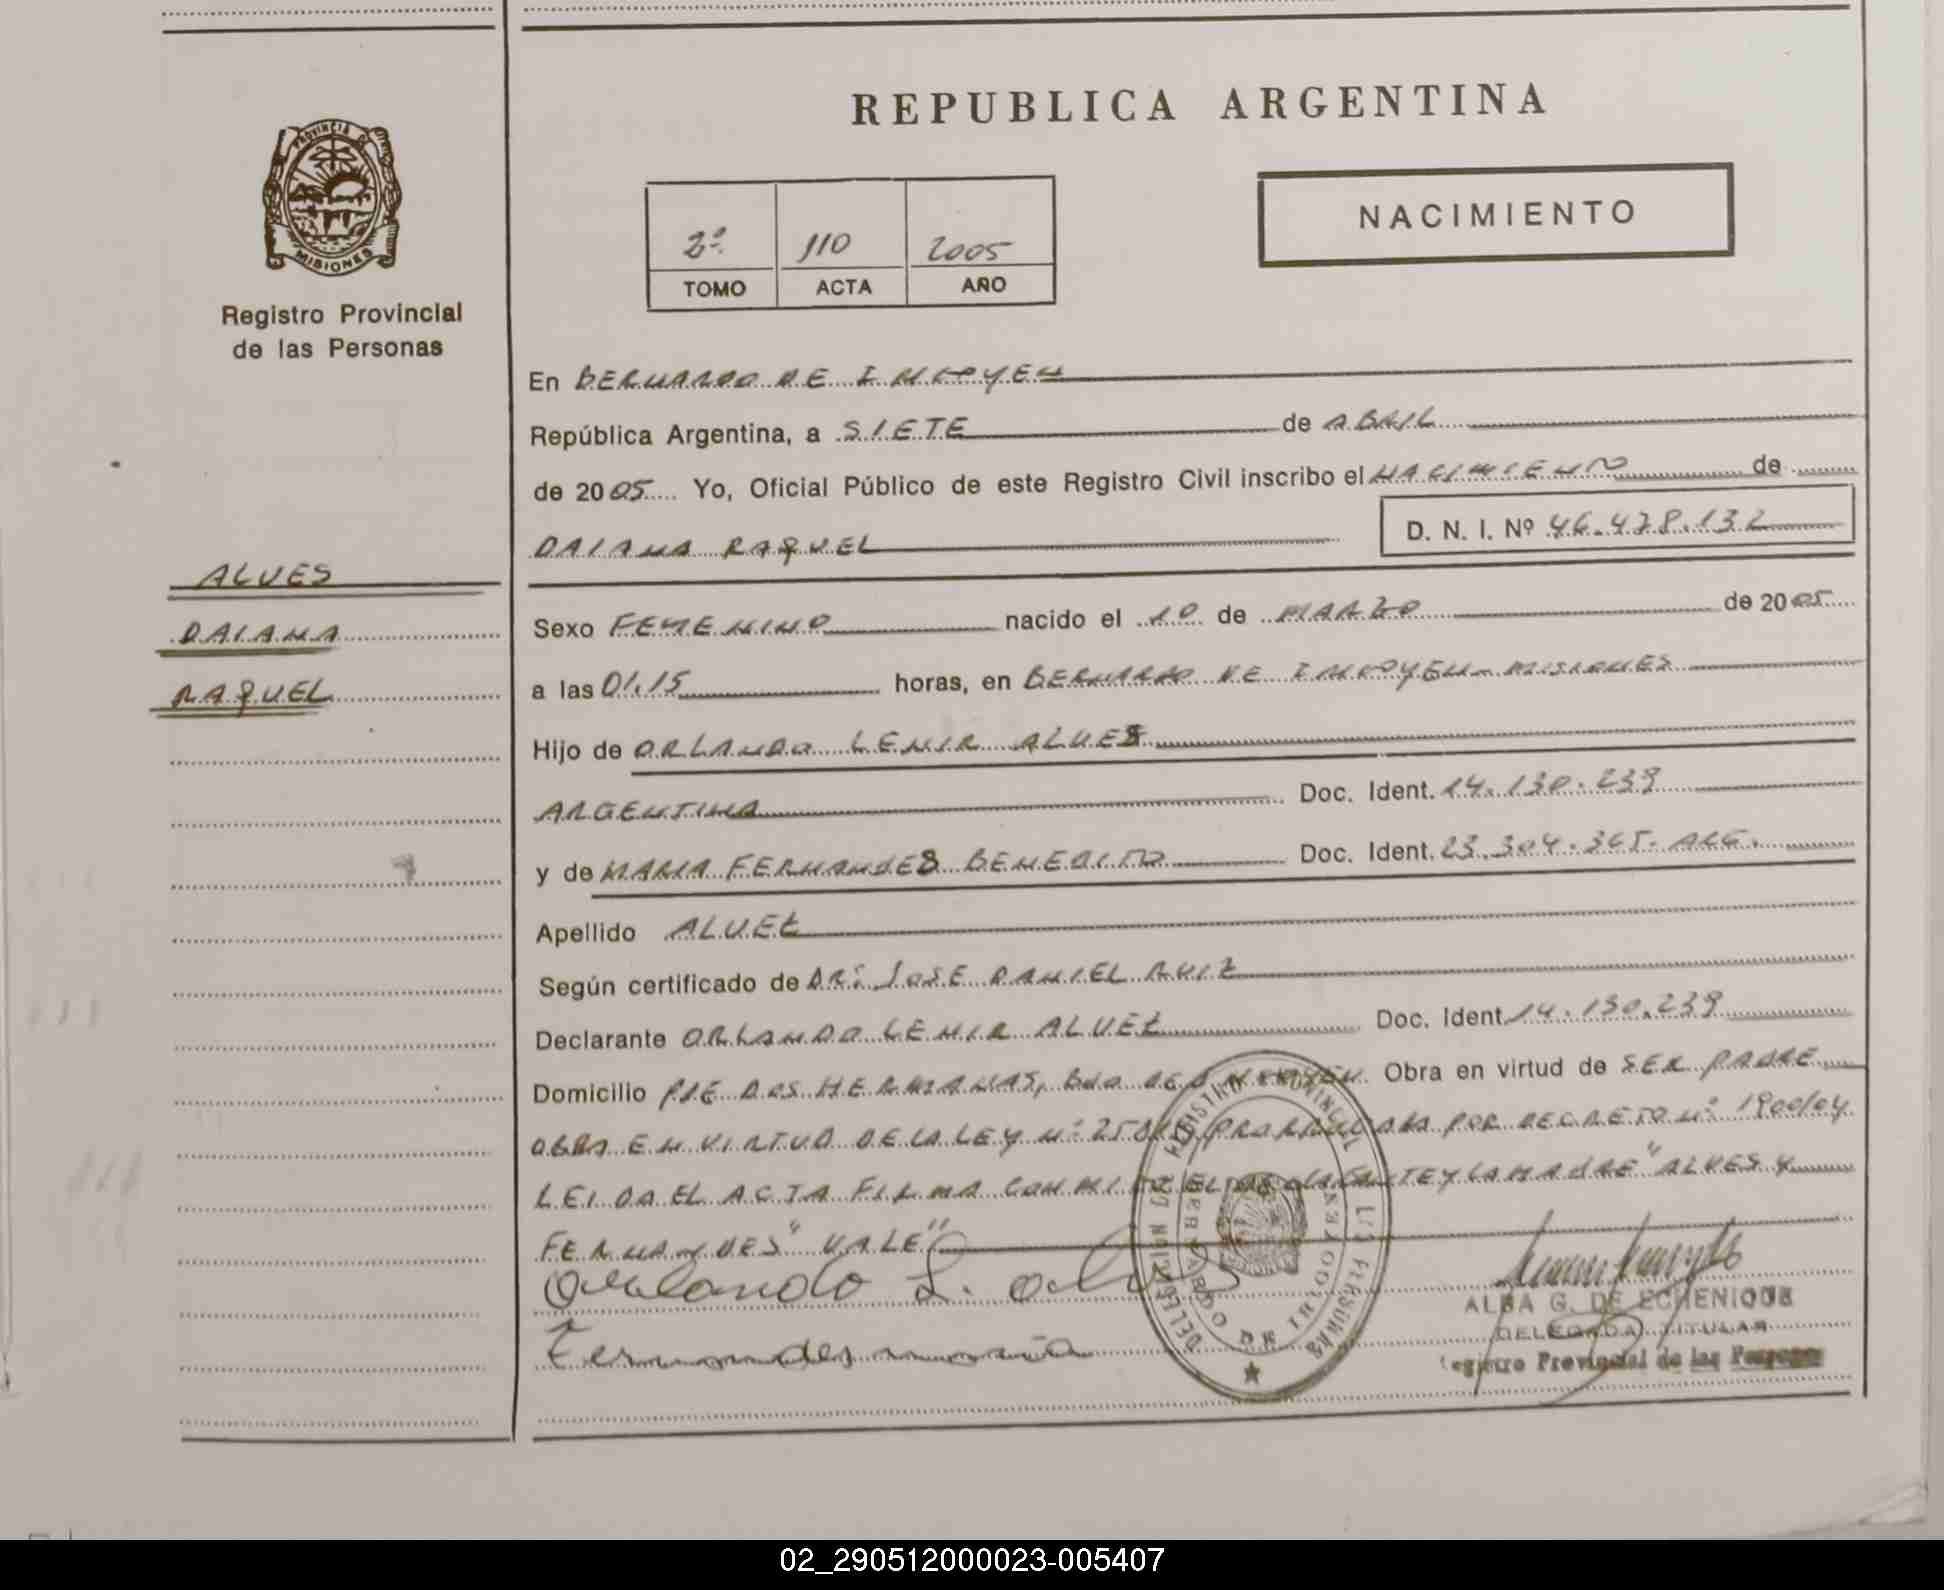 REPUBLICA ARGENTINA
PROVINCIA DE
MISIONES
Registro Provincial
de las Personas
NACIMIENTO
2º 110 2005
TOMO ACTA AÑO
En BERNARDO DE IRIGOYEN
República Argentina, a SIETE de ABRIL
de 2005 Yo, Oficial Público de este Registro Civil inscribo el NACIMIENTO de
DAIANA RAQUEL D. N. I. Nº 46.478.132
ALVES
DAIANA
RAQUEL
Sexo FEMENINO nacido el 10 de MARZO de 2005
a las 01.15 horas, en BERNARDO DE IRIGOYEN - MISIONES
Hijo de ORLANDO LENIR ALVES
ARGENTINA Doc. Ident. 14.130.239
y de MARIA FERNANDES BENEDITO Doc. Ident. 23.304.365. ARG.
Apellido ALVEZ
Según certificado de DR: JOSE DANIEL RUIZ
Declarante ORLANDO LENIR ALVEZ Doc. Ident. 14.130.239
Domicilio PJE DOS HERMANAS, BDO DE IRIGOYEN Obra en virtud de SER PADRE
OBRA EN VIRTUD DE LA LEY Nº POR DECRETO Nº 1900/04
LEIDA EL ACTA FIRMA CONMIGO EL Y LA MADRE "ALVES Y
FERNANDES" VALE"
Orlando L. alves
Fernandes maria
DELEGACION DEL REGISTRO PROVINCIAL DE LAS PERSONAS
BERNARDO DE IRIGOYEN
ALBA G. DE ECHENIQUE
DELEGADA TITULAR
Registro Provincial de las Personas
02_290512000023-005407